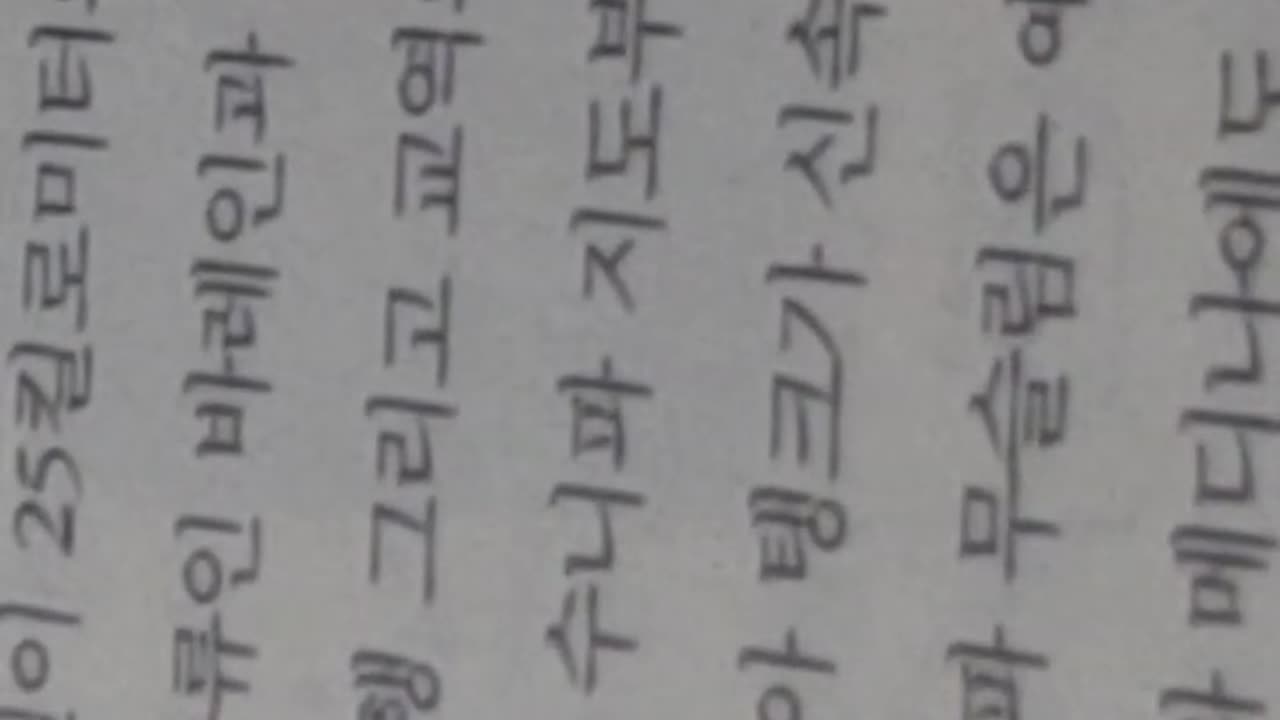 이 25킬로미터
류인 바레인과
행 그리고 교역
수니파 지도부
아 탱크가 신속
파 무슬림은
메디나에도